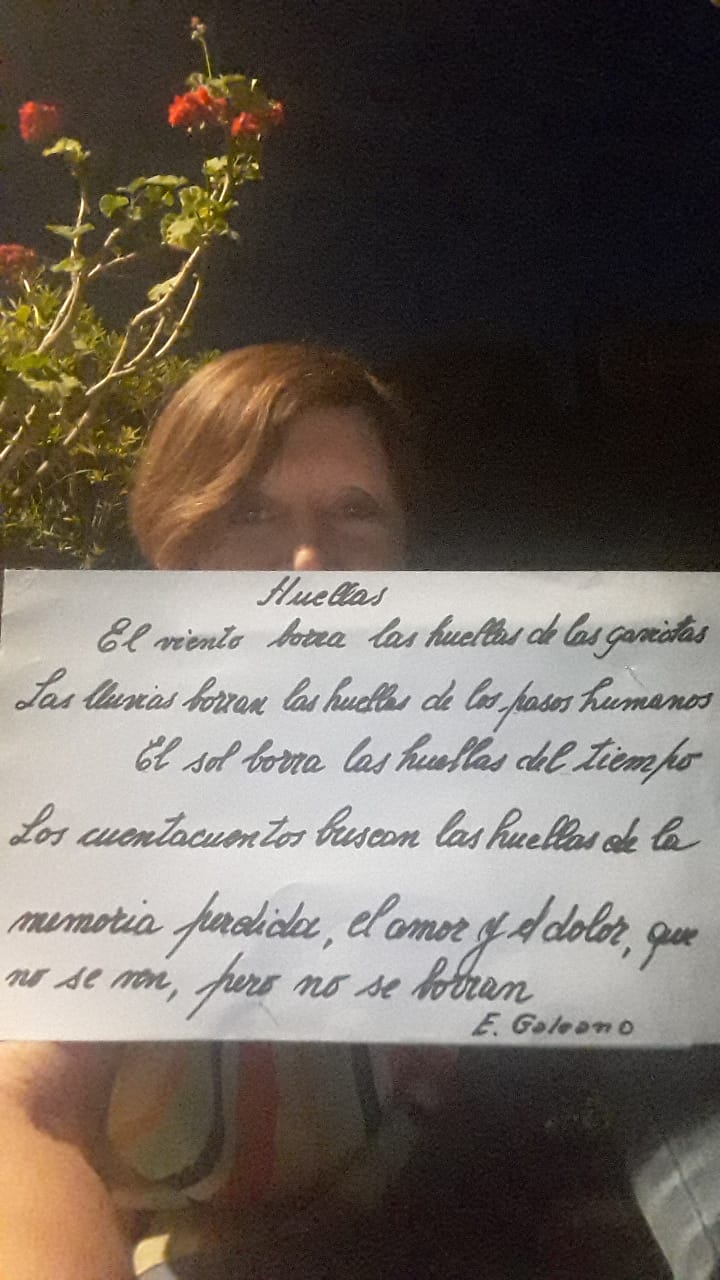 Huellas
El viento borra las huellas de las gaviotas
Las lluvias borran las huellas de los pasos humanos
El sol borra las huellas del tiempo
Los cuentacuentos buscan las huellas de la
memoria perdida, el amor y el dolor, que
no se ven, pero no se borran
E. Galeano